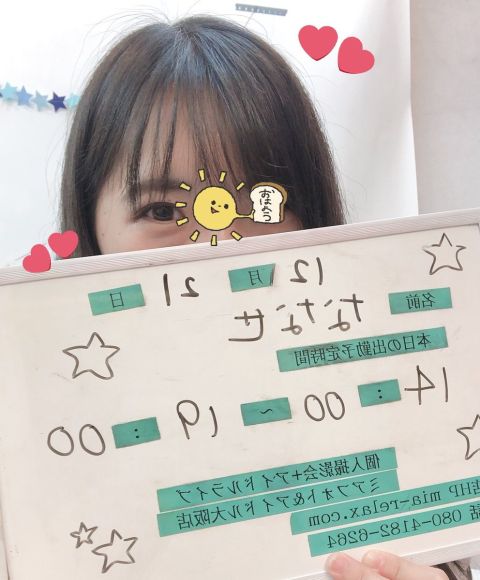 おはよう
12月21日
名前 ななせ
本日の出勤予定時間
14:00~19:00
個人撮影会+アイドルライブ
ミアフォト&アイドル大阪店
HP mia-relax.com
話 080-4182-6264